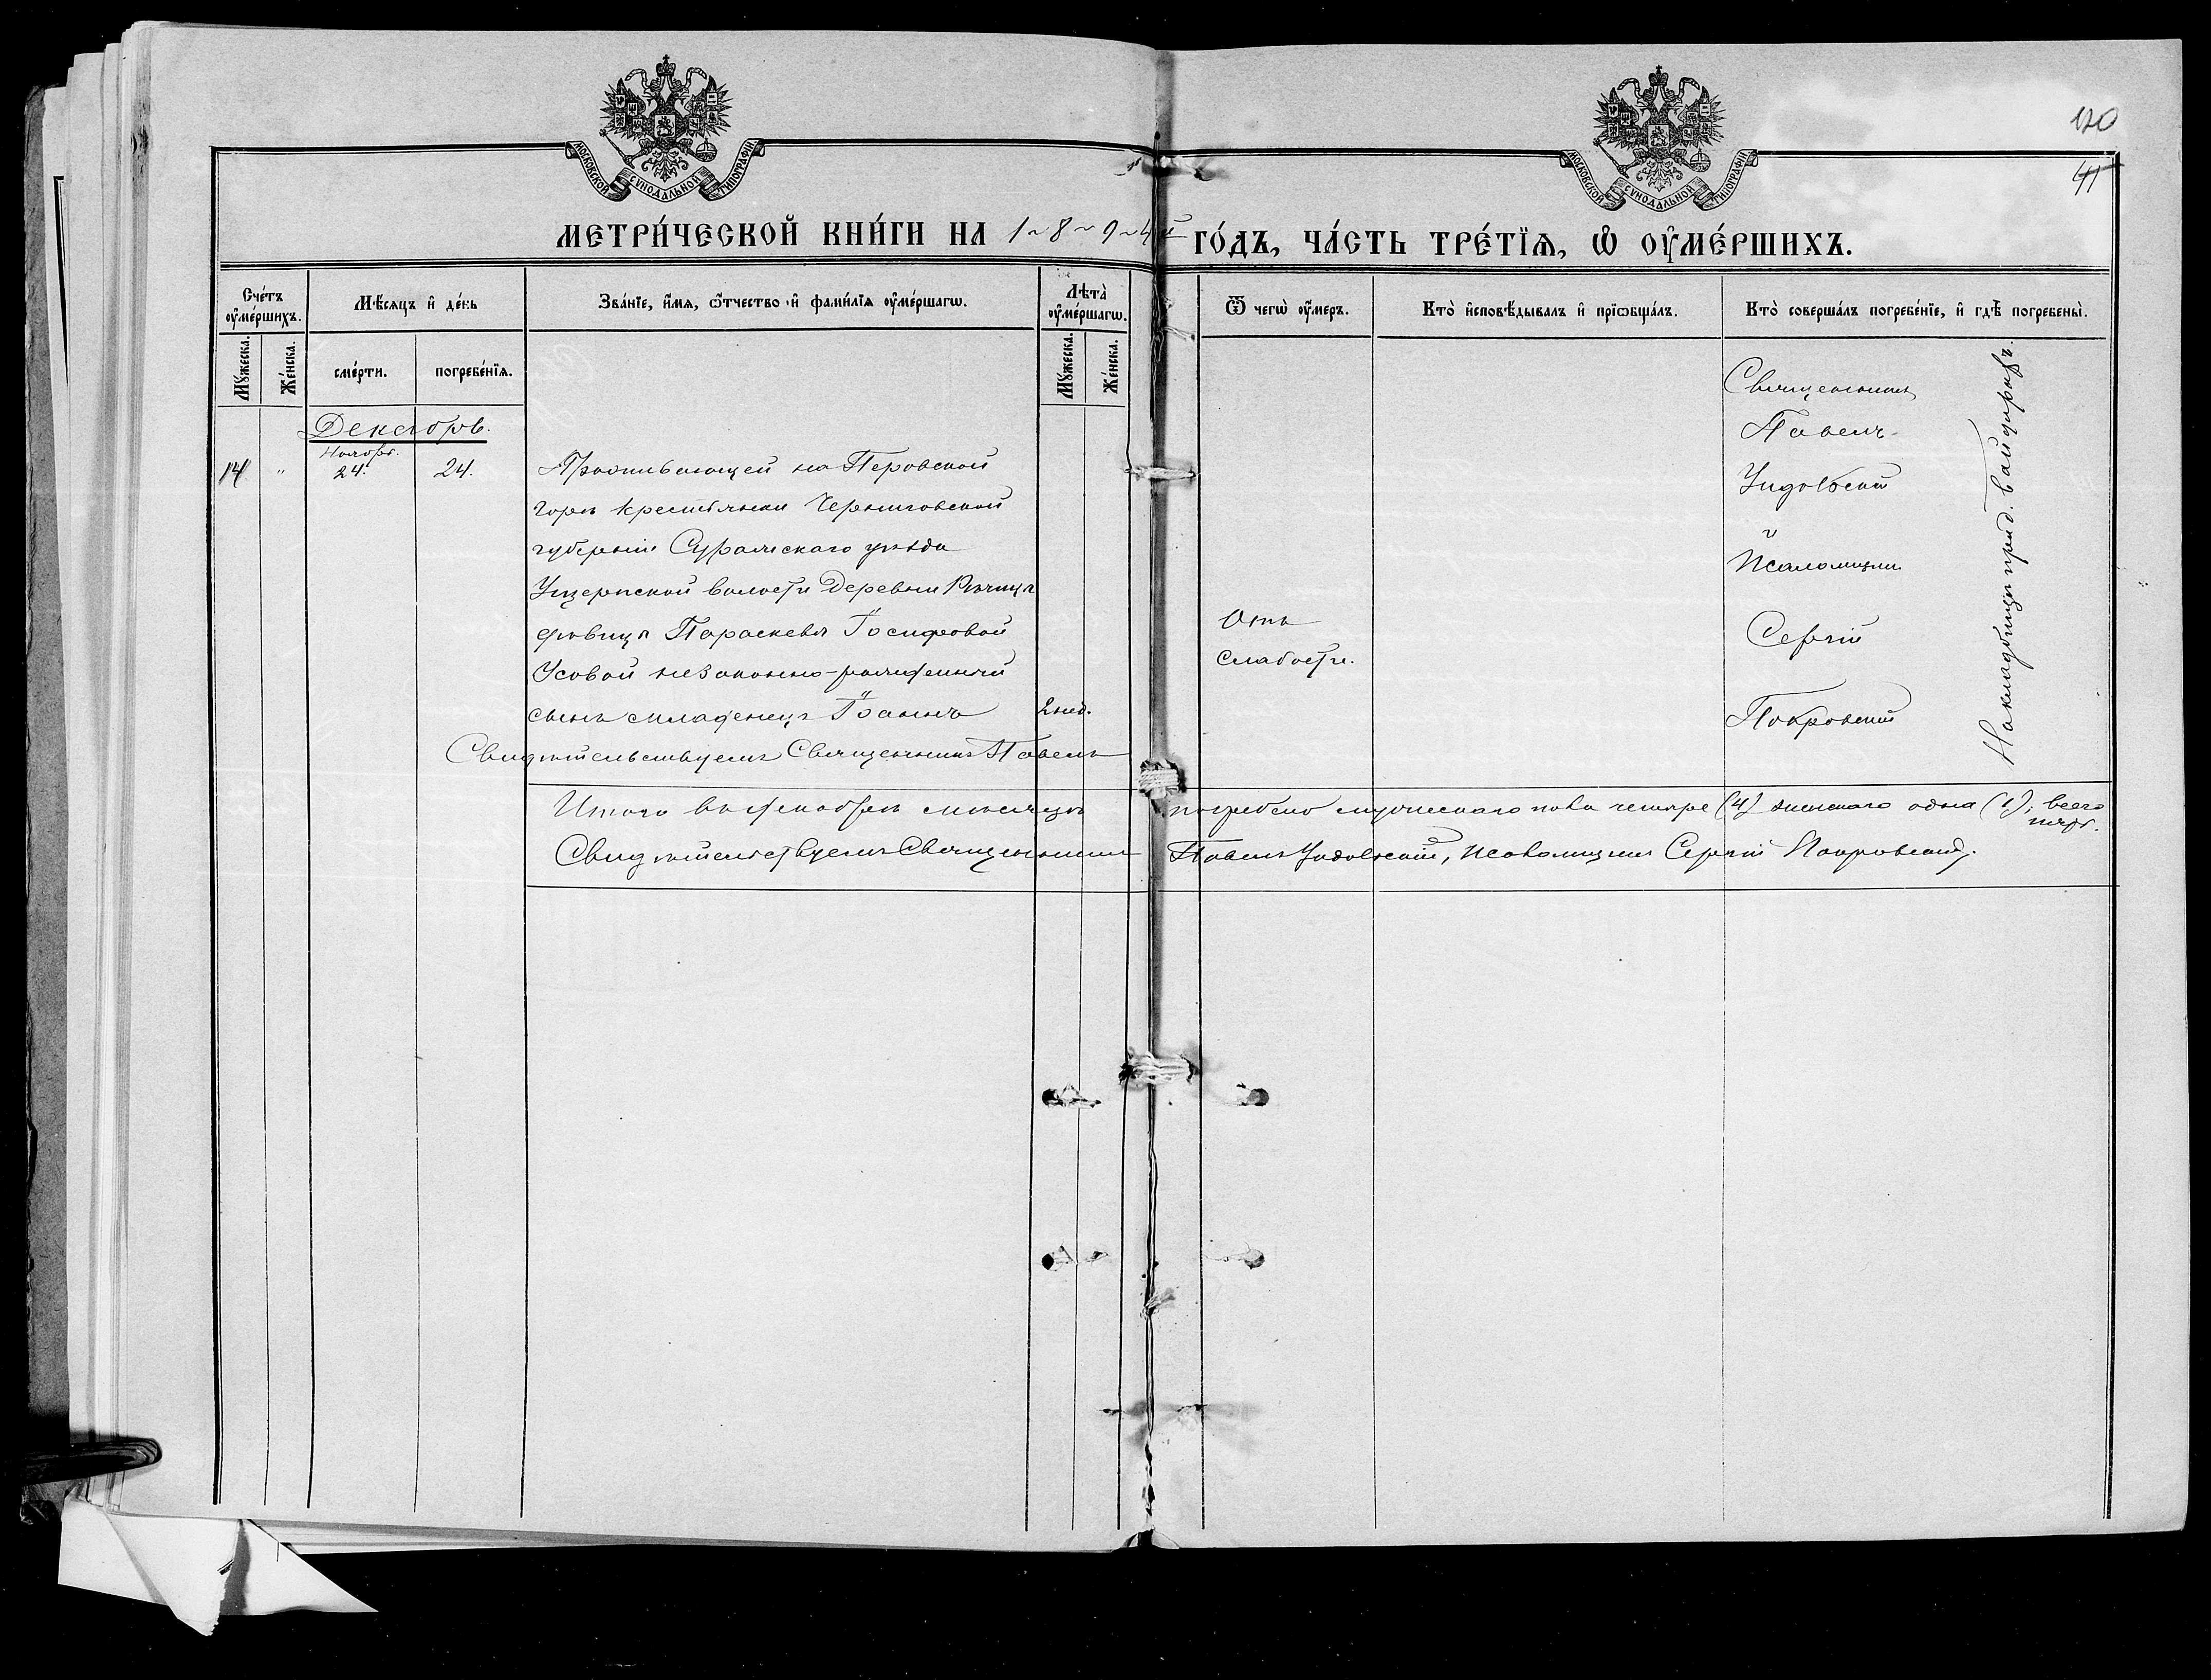 120
41
МОСКОВСКОЙ СѴНОДАЛЬНОЙ ТИПОГРАФІИ
МОСКОВСКОЙ СѴНОДАЛЬНОЙ ТИПОГРАФІИ
МЕТРИ́ЧЕСКОЙ КНИ́ГИ НА 1~8~9~4й ГО́ДЪ, ЧА́СТЬ ТРЕ́ТЇѦ, Ѡ҆ ОУ҆МЕ́РШИХЪ.
Сче́тъ оу҆ме́ршихъ.
Мꙋ́жеска.
Же́нска.
Мѣ́сяцъ и҆ де́нь
сме́рти.
погребе́нїѧ.
Зва́нїе, и҆́мѧ, ѻ҆́тчество и҆ фами́лїѧ оу҆ме́ршагѡ.
Лѣта̀ оу҆ме́ршагѡ.
Мꙋ́жеска.
Же́нска.
Ѿ чегѡ̀ оу҆́меръ.
Кто̀ и҆сповѣ́дывалъ и҆ прїѡбща́лъ.
Кто̀ соверша́лъ погребе́нїе, и҆ гдѣ̀ погребены̀.
Декабрь.
14
"
Ноября.
24.
24.
Проживающей на Перовской
горѣ крестьянки Черниговской
губерніи Суражскаго уѣзда
Ущерпской волости Деревни Рѣчица
дѣвицы Параскевы Іосифовой
Усовой незаконно-рожденный
сынъ младенецъ Іоаннъ
2 нед.
Отъ
слабости.
Священникъ
Павелъ
и
Псаломщикъ
Сергій
Покровскій
На кладбищѣ
Свидѣтельствуемъ Священникъ Павелъ
Итого въ декабрѣ мѣсяцѣ погребено мужескаго пола четыре (4) женскаго одна (1), всего
пять.
Свидѣтельствуемъ Священникъ Павелъ Псаломщикъ Сергій Покровскій.